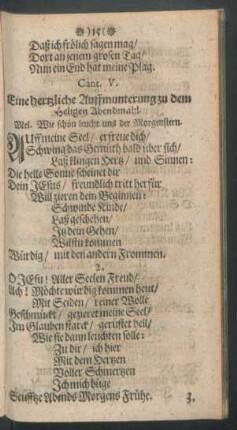 )15(
Daß ich frölich sagen mag/
Dort an jenem grossen Tag/
Nun ein End hat meine Plag.
Cant. V.
Eine hertzliche Auffmunterung zu dem
Heiligen Abendmahl.
Mel. Wie schön leucht uns der Morgenstern.
AUff meine Seel/ erfreue dich/
Schwing das Gemüth bald über sich/
Laß klingen Hertz/ und Sinnen:
Die helle Sonne scheinet dir
Dein JEsus/ freundlich tritt herfür
Will zieren dein Beginnen:
Schwinde Kinde/
Laß geschehen/
Itz dein Gehen/
Wilkommen
Würdig/ mit den andern Frommen.
2.
O JEsu! Aller Seelen Freud/
Ach! Möcht würdig kommen heut/
Mit Seiden/ reiner Wolle
Geschmückt/ gezieret meine Seel/
Im Glauben starck/ gerüstet hell/
Wie sie dann leuchten solle:
Zu dir/ ich hier
Mit dem Hertzen
Voller Schmertzen
Ich mich büge
Seufftze Abends Morgens Frühe.
3.